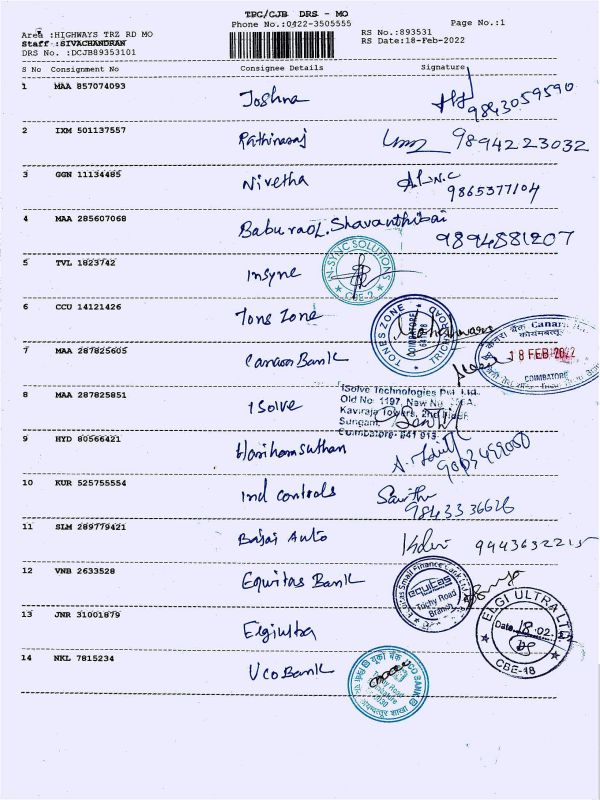 TPC/CJB DRS - MO
Phone No.:0422-3505555
Page No.:1
Area :HIGHWAYS TRZ RD MO
RS No.:893531
Staff :SIVACHANDRAN
RS Date:18-Feb-2022
DRS No. :DCJB89353101
S No Consignment No Consignee Details Signature
1 MAA 857074093 Joshna 9843059590
2 IXM 501137557 Rathinaraj 9894223032
3 GGN 11134485 Nivetha A.L.N.C 9865377104
4 MAA 285607068 Baburao L. Shavanthibai 9894881207
5 TVL 1823742 Insync IN-SYNC SOLUTIONS CBE-2
6 CCU 14121426 Tons Zone TONES ZONE TRICHY ROAD COIMBATORE Maheshwari
7 MAA 287825605 Canara Bank केनरा बैंक Canara 18 FEB 2022 COIMBATORE
8 MAA 287825851 ISolve
iSolve Technologies Pvt. Ltd.
Old No: 1197, New No
Kaviraja Towers, 2nd Floor,
Sungam,
Coimbatore- 641 018.
9 HYD 80566421 Hariharasuthan
10 KUR 525755554 Ind controls 9843336626
11 SLM 289779421 Bajaj Auto 9443632215
12 VNB 2633528 Equitas Bank Equitas Small Finance Bank Ltd equitas Trichy Road Branch
13 JNR 31001879 Elgiultra ELGI ULTRA LTD Date 18.02 CBE-18
14 NKL 7815234 Uco Bank यूको बैंक UCO BANK